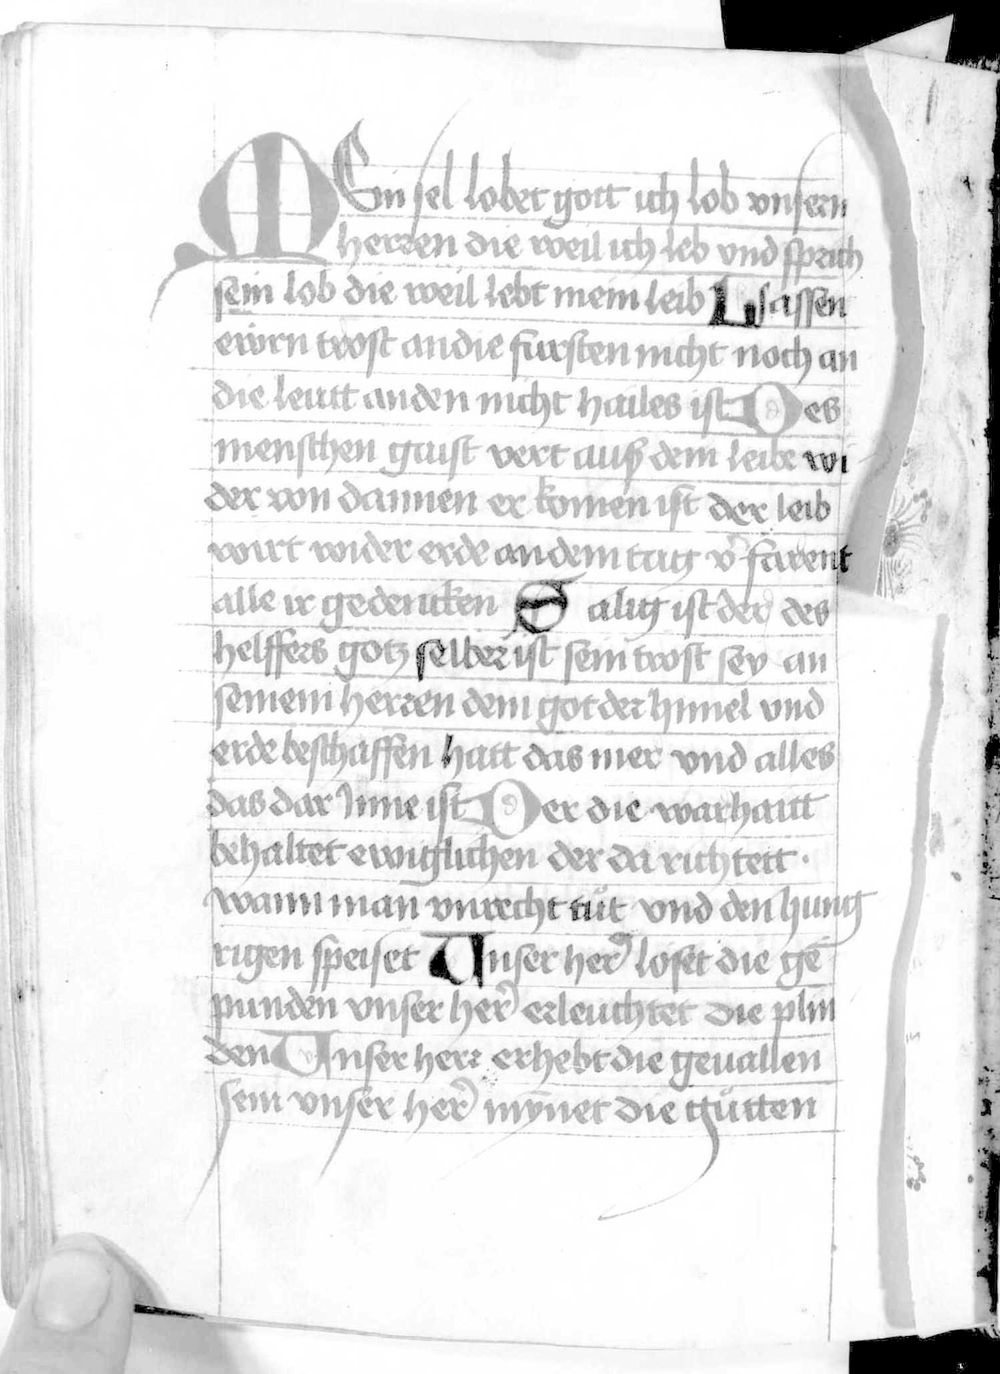 MEin sel lobet gott ich lob vnsern
herren die weil ich leb vnd sprich
sein lob die weil lebt mein leib Lsassen
ewrn trost an die fursten nicht noch an
die leutt an den nicht hailes ist Des
menschen gaist vert auß dem leibe wi
der von dannen er komen ist der leib
wirt wider erde an dem tag v̾farent
alle ir gedencken Salig ist der des
helffers gotz selber ist sein trost sey an
seinem herren dem got der himel vnd
erde beschaffen hatt das mer vnd alles
das dar Jnne ist Der die warhaitt
behaltet ewiglichen der da richtett ·
wann man vnrecht tut vnd den hung
rigen speiset Vnser her̾ loset die ge
punden vnser her̾ erleuchtet die plin
den Vnser herr erhebt die geuallen
sein vnser her̾ mynet die gutten